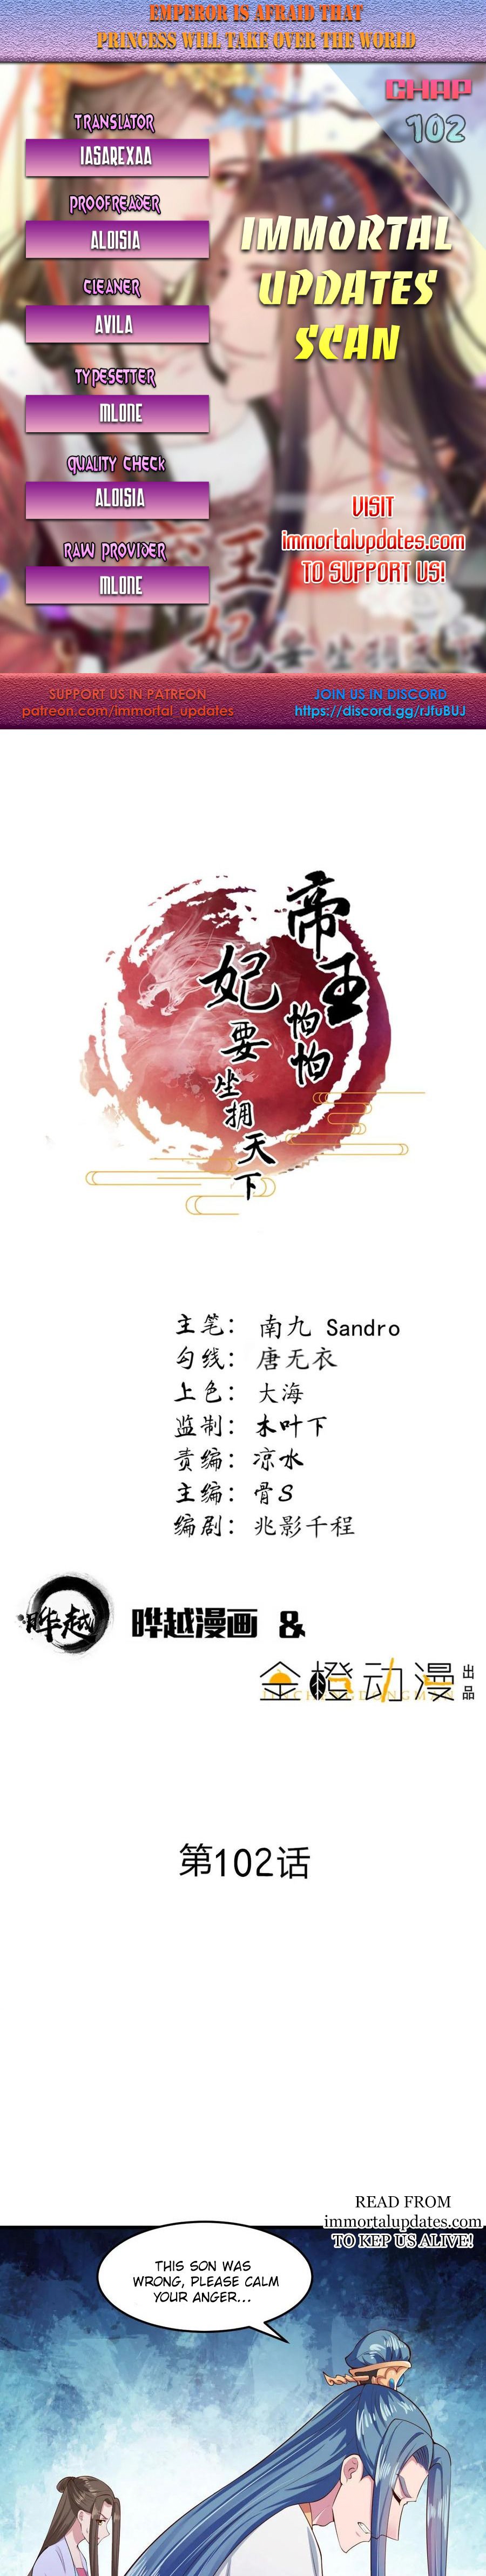 EMPEROR IS AFRAID THAT
PRINCESS WILL TAKE OVER THE WORLD
CHAP
102
TRANSLATOR
IASAREXAA
PROOFREADER
ALOISIA
CLEANER
AVILA
TYPESETTER
MLONE
QUALITY CHECK
ALOISIA
RAW PROVIDER
MLONE
IMMORTAL
UPDATES
SCAN
VISIT
immortalupdates.com
TO SUPPORT US!
妃要坐拥天下
SUPPORT US IN PATREON
patreon.com/immortal_updates
JOIN US IN DISCORD
https://discord.gg/rJfuBUJ
帝王怕怕
妃要坐拥天下
主笔：南九 Sandro
勾线：唐无衣
上色：大海
监制：木叶下
责编：凉水
主编：骨S
编剧：兆影千程
晔越
晔越漫画 &
金橙动漫出品
第102话
READ FROM
immortalupdates.com
TO KEP US ALIVE!
THIS SON WAS
WRONG, PLEASE CALM
YOUR ANGER...